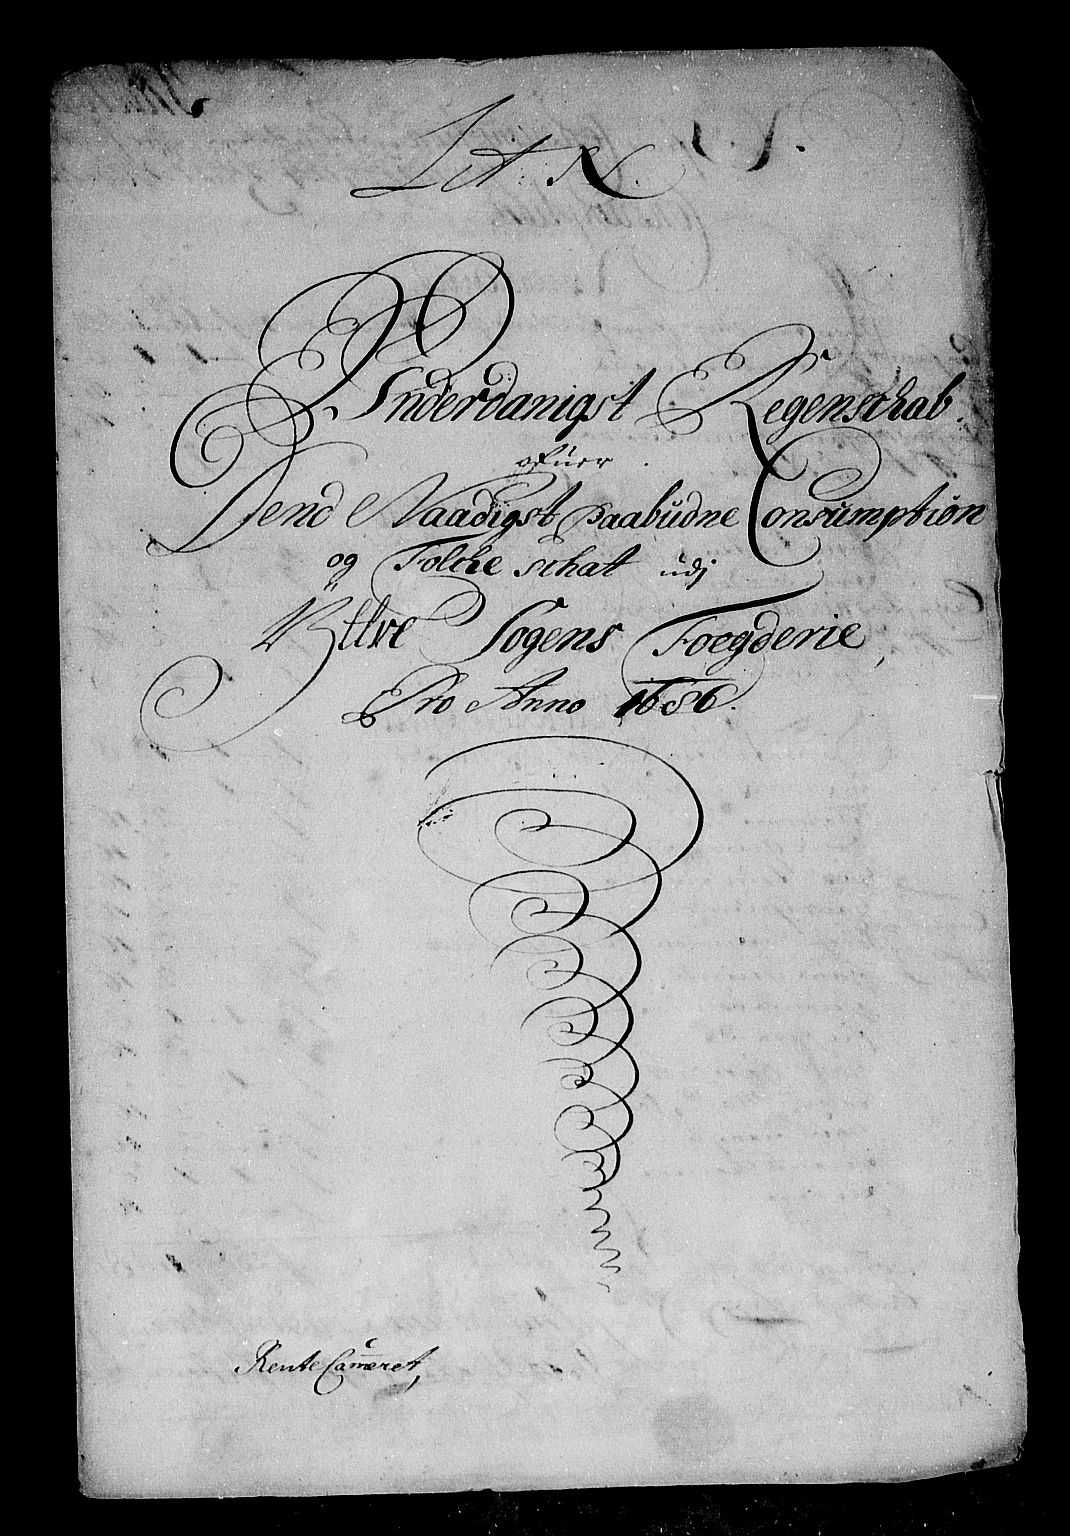 Lit: N.
Vnderdanigst Regenschab.
ofuer.
Dend Naadigst paabudne Consumption
og Folcke schat udj
Yttre Sogens Foegderie,
Pro Anno 1686.
RenteCammeret,